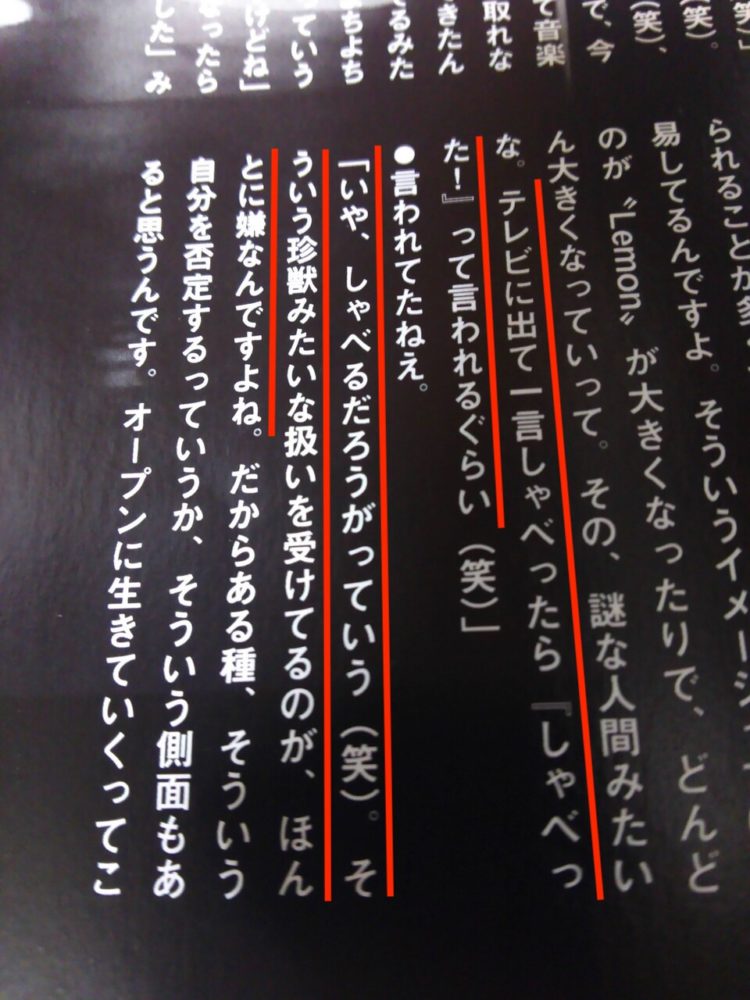 笑)」
(笑)。
(笑)、
で、今
て音楽
取れな
きたん
てるみた
ちよち
っていう
けどね」
なったら
した」み
られることが多
易してるんですよ。そういうイメージ
のが〝Lemon〟が大きくなったりで、どんど
ん大きくなっていって。その、謎な人間みたい
な。テレビに出て一言しゃべったら『しゃべっ
た！』って言われるぐらい（笑）」
●言われてたねえ。
「いや、しゃべるだろうがっていう（笑）。そ
ういう珍獣みたいな扱いを受けてるのが、ほん
とに嫌なんですよね。だからある種、そういう
自分を否定するっていうか、そういう側面もあ
ると思うんです。オープンに生きていくってこ